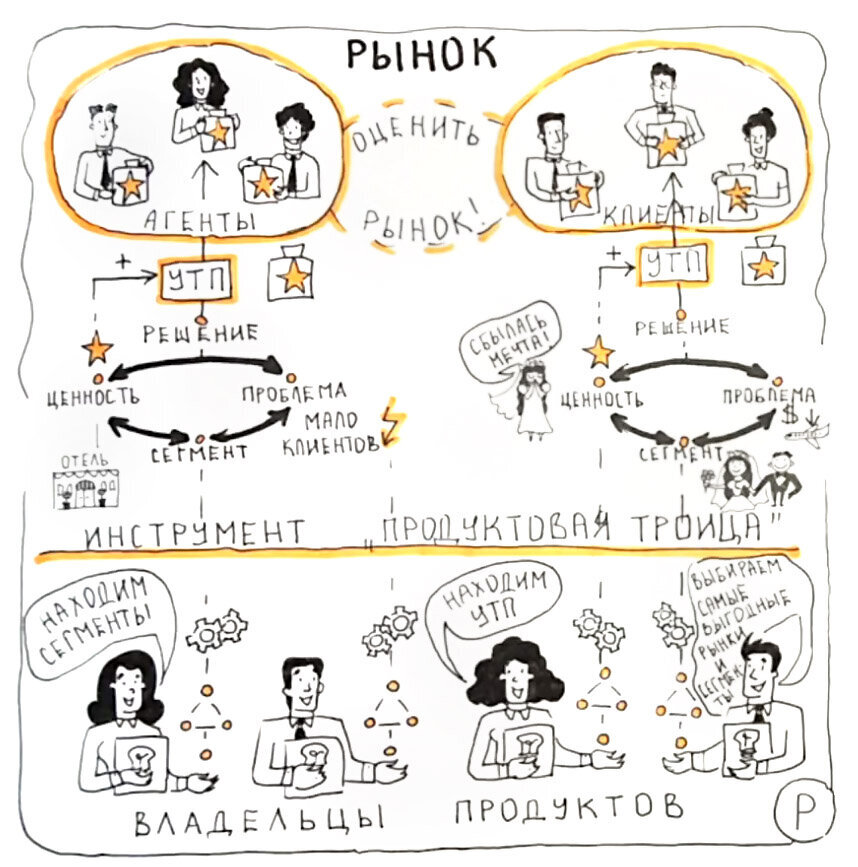 РЫНОК
ОЦЕНИТЬ
РЫНОК!
АГЕНТЫ
КЛИЕНТЫ
+
УТП
+
УТП
РЕШЕНИЕ
РЕШЕНИЕ
СБЫЛАСЬ
МЕЧТА!
ЦЕННОСТЬ
ПРОБЛЕМА
МАЛО
КЛИЕНТОВ
СЕГМЕНТ
ОТЕЛЬ
ЦЕННОСТЬ
ПРОБЛЕМА
$
СЕГМЕНТ
ИНСТРУМЕНТ „ПРОДУКТОВАЯ ТРОИЦА"
НАХОДИМ
СЕГМЕНТЫ
НАХОДИМ
УТП
ВЫБИРАЕМ
САМЫЕ
ВЫГОДНЫЕ
РЫНКИ
И
СЕГМЕН-
ТЫ
ВЛАДЕЛЬЦЫ ПРОДУКТОВ
Р